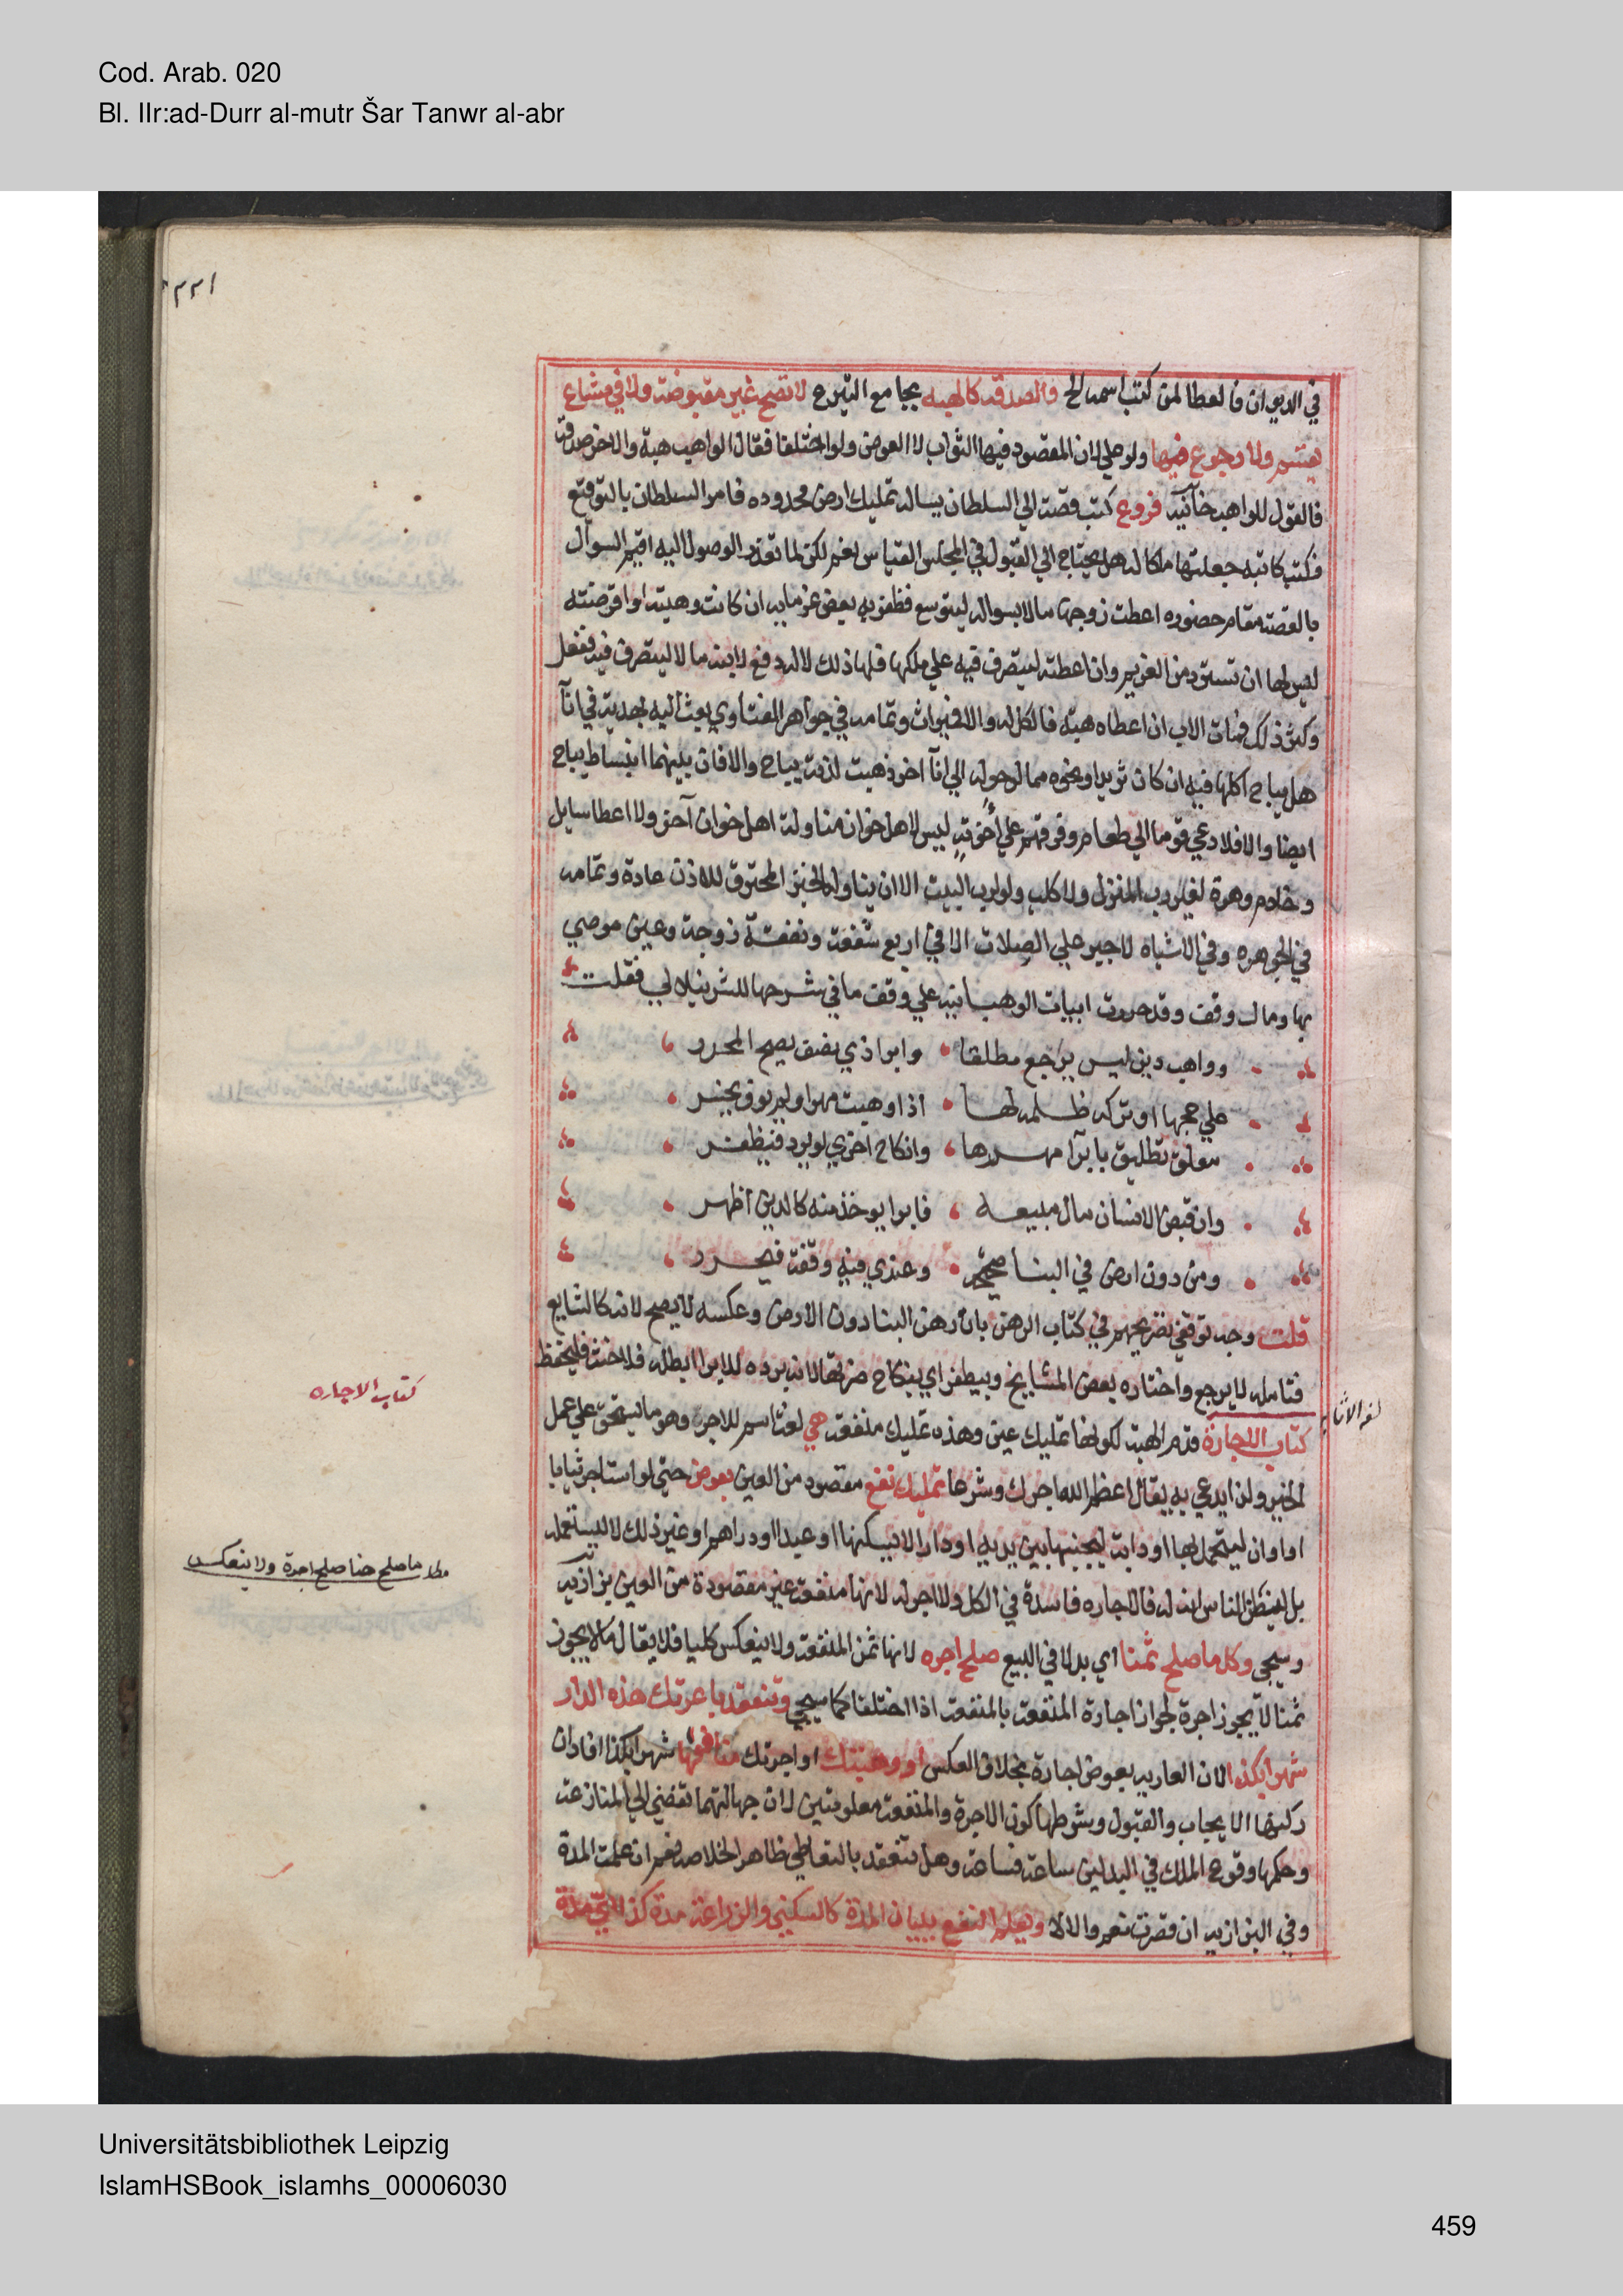 Cod. Arab. 020
Bl. IIr:ad-Durr al-mutr Šar Tanwr al-abr
في الديوان فالعطا لمن كتب اسمه الخ والصدقة كالهبه بجامع التبرع لا تصح غير مقبوضة ولا في مشاع
يقسم ولا رجوع فيها ولو علي لان المقصود فيها الثواب لا العوض ولو اختلفا فقال الواهب هبة والاخر صدقة
فالقول للواهب خانية فروع كتب قصة الي السلطان يساله تمليك ارض محدوده فامر السلطان بالتوقيع
فكتب كاتبه جعلتها ملكا له هل يحتاج الي القبول في المجلس القياس نعم لكن لما تعذر الوصول اليه اقيم السوال
بالقصة مقام حضوره اعطت زوجها مالا بسواله ليتوسع فظفر به بعض غرمايه ان كانت وهبته او اقرضته
ليس لها ان تسترد من الغريم وان اعطته ليتصرف فيه علي ملكها فلها ذلك لا له دفع لابنه مالا ليتصرف فيه ففعل
وكثر ذلك فمات الاب ان اعطاه هبة فالكل له والا فميراث وتمامه في جواهر الفتاوي بعث اليه بهدية في انآ
هل يباح اكلها فيه ان كان ثريدا ونحوه مما لو حوله الي انآ اخر ذهبت لذته يباح والا فان بينهما انبساط يباح
ايضا والا فلا دعي قوما الي طعام وفرقهم علي اخونة ليس لاهل خوان مناولة اهل خوان آخر ولا اعطا سايل
وخادم وهرة لغير رب المنزل ولا كلب ولو لرب البيت الا ان يناوله الخبز المحترق للاذن عادة وتمامه
في الجوهره وفي الاشباه لا جبر علي الصلات الا في اربع شفعة ونفقة زوجة وعين موصي
بها ومال وقف وقد حررت ابيات الوهبانيه علي وفق ما في شرحها للشرنبلالي فقلت
وواهب دين ليس يرجع مطلقا وابرا ذي نصف يصح المحرر
علي حجها او تركه ظلمه لها اذا وهبت مهرا ولم يوف يخسر
معلق تطليق بابرآ مهرها وانكاح اخري لو برد فيظفر
وان قبض الانسان مال مبيعه فابرا يوخذ منه كالدين اظهر
ومن دون ارض في البنا صحيحة وعندي فيه وقفة فيحرر
قلت وجه توقفي تصريحهم في كتاب الرهن بان رهن البنا دون الارض وعكسه لا يصح لانه كالشايع
فتامله لا يرجع واختاره بعض المشايخ وبيظفر اي بنكاح ضرتها لانه برده للابرا ابطله فلا حنث فليحفظ
كتاب الاجارة قدم الهبة لكونها تمليك عين وهذه تمليك منفعة هي لغة اسم للاجره وهو ما يستحق علي عمل
الخير ولذا يدعي به يقال اعظم الله اجرك وشرعا تمليك نفع مقصود من العين بعوض حتي لو استاجر ثيابا
او اوان ليتجمل بها او دابة ليجنبها بين يديه او دارا لا ليسكنها او عبدا او دراهم او غير ذلك لا ليستعمله
بل ليظن الناس انه له فالاجاره فاسدة في الكل ولا اجر له لانها منفعة غير مقصودة من العين بزازية
وسيجي وكل ما صلح ثمنا اي بدلا في البيع صلح اجره لانها ثمن المنفعة ولا ينعكس كليا فلا يقال ما لا يجوز
ثمنا لا يجوز اجرة لجواز اجارة المنفعة بالمنفعة اذا اختلفا كما سيجي وتنعقد باعرتك هذه الدار
شهرا بكذا لان العاريه بعوض اجارة بخلاف العكس او وهبتك او اجرتك منافعها شهرا بكذا افاد ان
ركنها الايجاب والقبول وشرطها كون الاجرة والمنفعة معلومتين لان جهالتهما تفضي الي المنازعة
وحكمها وقوع الملك في البدلين ساعة فساعة وهل تنعقد بالتعاطي ظاهر الخلاصه نعم ان علمت المدة
وفي البزازيه ان قصرت نعم والا لا ويعلم النفع ببيان المدة كالسكني والزراعة مدة كذا اي مدة
كتاب الاجاره
مطلب ما صلح ثمنا صلح اجرة ولا ينعكس
Universitätsbibliothek Leipzig
IslamHSBook_islamhs_00006030
459